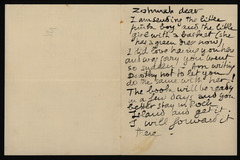 Zohmah dear
I am sending the little
fruita boy and the little
girl with a basket (she
has a green dress now)
I'd love having you here
and was sorry you went
so suddenly I am writing
Dorothy not to let you
do the same with her!
The book will be ready
in a few days and you
better stay in Rock
Island and get it.
I will forward it